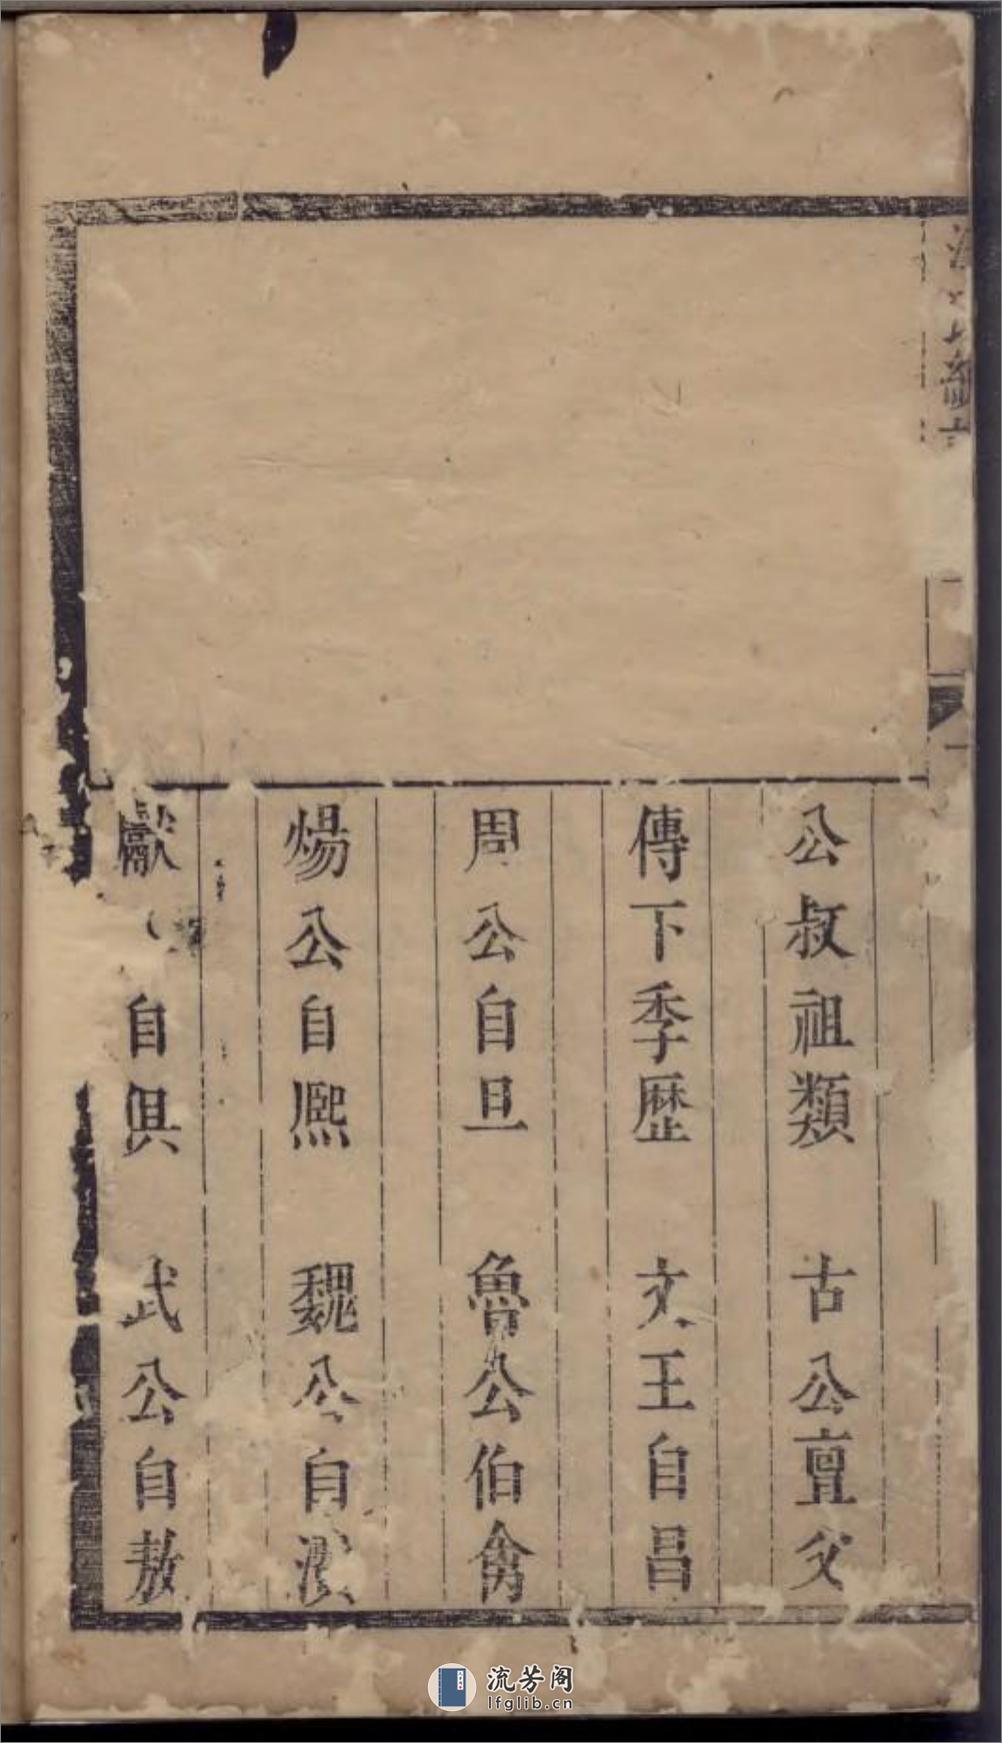 公叔祖類　古公亶父
傳下季歷　文王自昌
周公自旦　魯公伯禽
煬公自熙　魏公自
獻　自俱　武公自敖
流芳阁
lfglib.cn